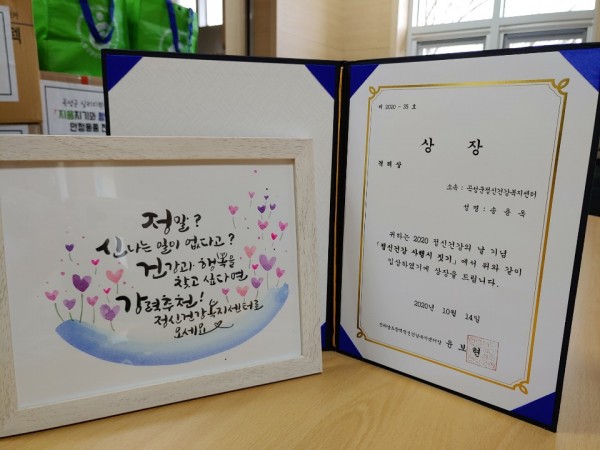 곡성군
정말?
신나는 일이 없다고?
건강과 행복을
찾고 싶다면
강력추천!
정신건강복지센터로
오세요
제 2020 - 35 호
상 장
소속 : 곡성군정신건강복지센터
귀하는 2020 정신건강의 날 기념
「정신건강 사행시 짓기」에서 위와 같이
입상하였기에 상장을 드립니다.
2020년 10월 14일